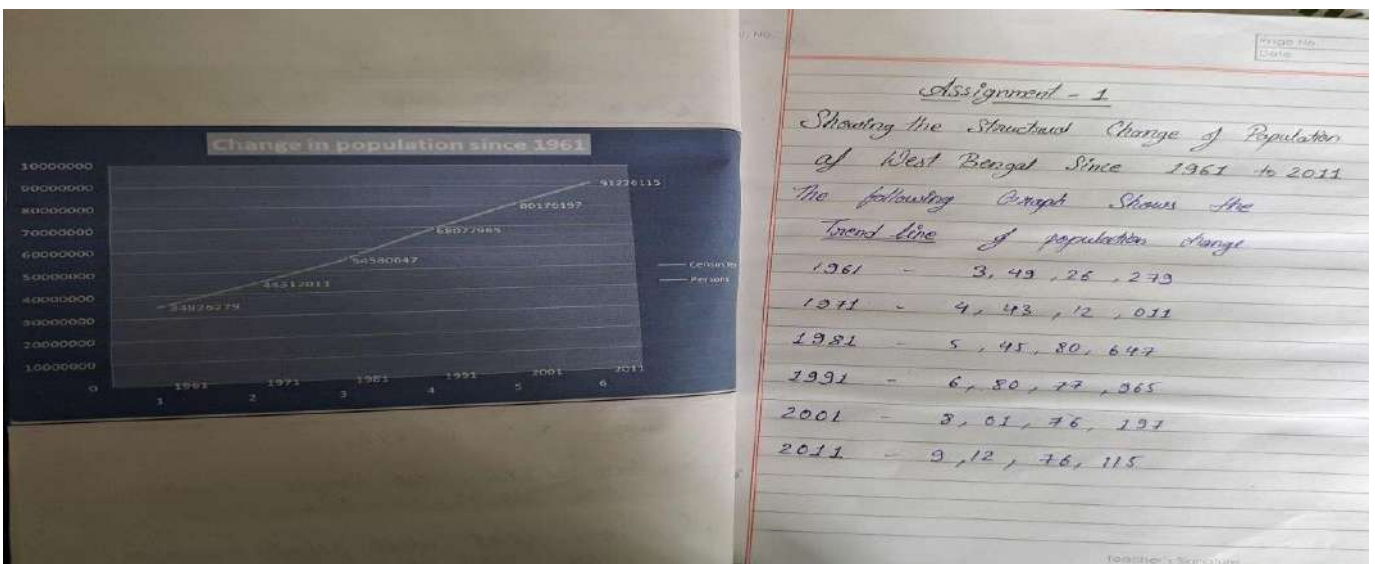 Change in population since 1961
10000000
90000000
80000000
70000000
60000000
50000000
40000000
30000000
20000000
10000000
0
34926279
44312011
54580647
68077965
80176197
91276115
1961
1971
1981
1991
2001
2011
1
2
3
4
5
6
Persons
Page No.
Date
Assignment - 1
Showing the Structural Change of Population
of West Bengal Since 1961 to 2011
The following Graph Shows the
Trend line of population change
1961 - 3,49,26,279
1971 - 4,43,12,011
1981 - 5,45,80,647
1991 - 6,80,77,965
2001 - 8,01,76,197
2011 - 9,12,76,115
Teacher's Signature